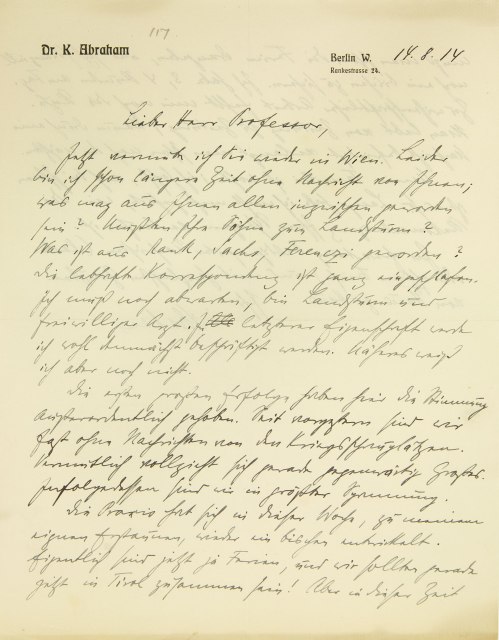 117
Dr. K. Abraham
Berlin W. 14.8.14
Rankestrasse 24.
Lieber Herr Professor,
Jetzt vermute ich Sie wieder in Wien. Leider
bin ich schon längere Zeit ohne Nachricht von Ihnen;
was mag aus Ihnen allen inzwischen geworden
sein? Mußten Ihre Söhne zum Landsturm?
Was ist aus Rank, Sachs, Ferenczi geworden?
Die lebhafte Korrespondenz ist ganz eingeschlafen.
Ich muß noch abwarten, bin Landsturm und
freiwilliger Arzt. In letzterer Eigenschaft werde
ich wohl demnächst beschäftigt werden. Näheres weiß
ich aber noch nicht.
Die ersten großen Erfolge haben hier die Stimmung
außerordentlich gehoben. Seit vorgestern sind wir
fast ohne Nachrichten von den Kriegsschauplätzen.
Vermutlich vollzieht sich gerade gegenwärtig Großes.
Infolgedessen sind wir in größter Spannung.
Die Praxis hat sich in dieser Woche, zu meinem
eignen Erstaunen, wieder ein bischen entwickelt.
Eigentlich sind jetzt ja Ferien, und wir sollten gerade
jetzt in Tirol zusammen sein! Aber in dieser Zeit